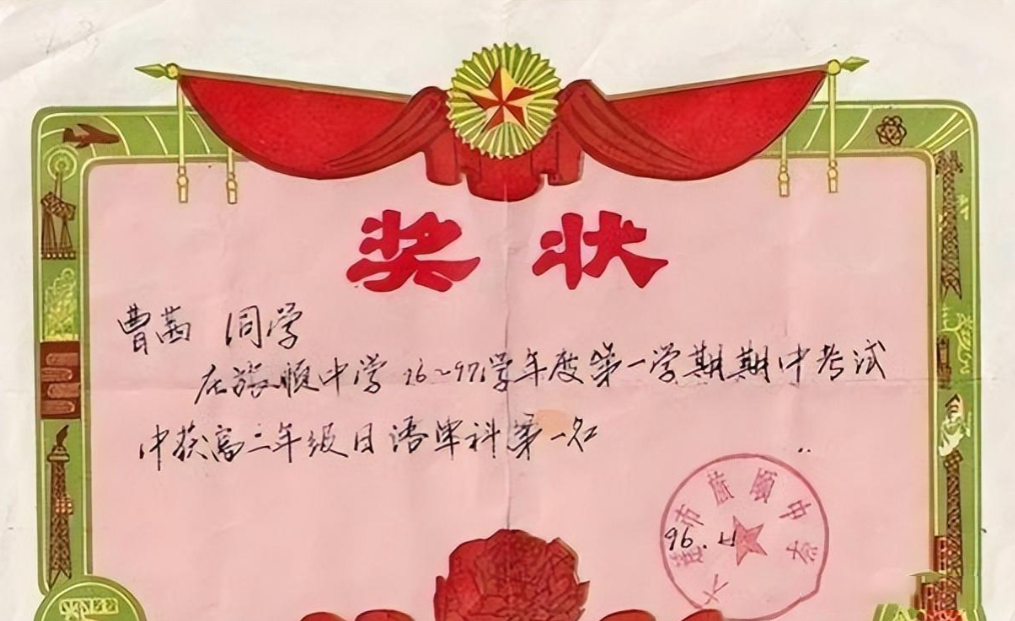 奖状
曹茜 同学
在旅顺中学96~97学年度第一学期期中考试
中获高二年级日语单科第一名
大连市旅顺中学
96.11